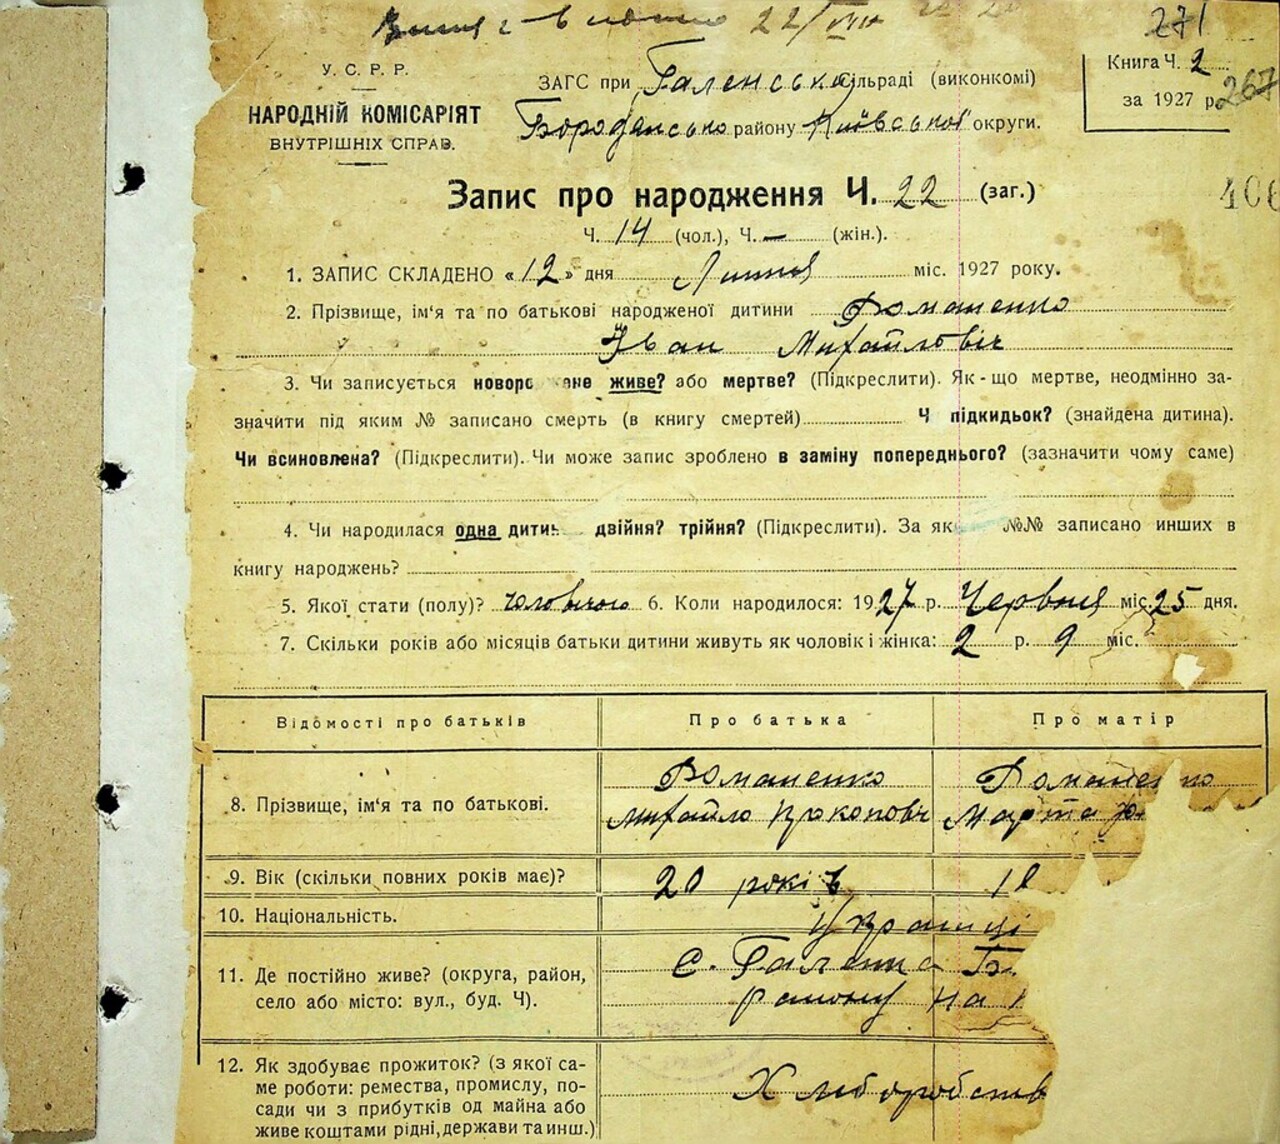 271
У.С.Р.Р.
НАРОДНІЙ КОМІСАРІЯТ
ВНУТРІШНІХ СПРАВ.
ЗАГС при Галенська сільраді (виконкомі)
Бородянсько району Київської округи.
Книга Ч. 2
за 1927 р. 267
406
Запис про народження Ч. 22 (заг.)
Ч. 14 (чол.), Ч. — (жін.).
1. ЗАПИС СКЛАДЕНО «12» дня Липня міс. 1927 року.
2. Прізвище, ім'я та по батькові народженої дитини Романенко
Іван Михайловіч
3. Чи записується новоро ене живе? або мертве? (Підкреслити). Як-що мертве, неодмінно за-
значити під яким № записано смерть (в книгу смертей) Ч підкидьок? (знайдена дитина).
Чи всиновлена? (Підкреслити). Чи може запис зроблено в заміну попереднього? (зазначити чому саме)
4. Чи народилася одна дитин двійня? трійня? (Підкреслити). За як №№ записано инших в
книгу народжень?
5. Якої стати (полу)? чоловічого 6. Коли народилося: 1927 р. Червня міс. 25 дня.
7. Скільки років або місяців батьки дитини живуть як чоловік і жінка: 2 р. 9 міс.
Відомості про батьків Про батька Про матір
8. Прізвище, ім'я та по батькові. Романенко Михайло Прокоповіч Романенко Марта
9. Вік (скільки повних років має)? 20 років
10. Національність. Українці
11. Де постійно живе? (округа, район, с. Галенка Б
село або місто: вул., буд. Ч). району на
12. Як здобуває прожиток? (з якої са-
ме роботи: ремества, промислу, по- Хліборобств
сади чи з прибутків од майна або
живе коштами рідні, держави та инш.)